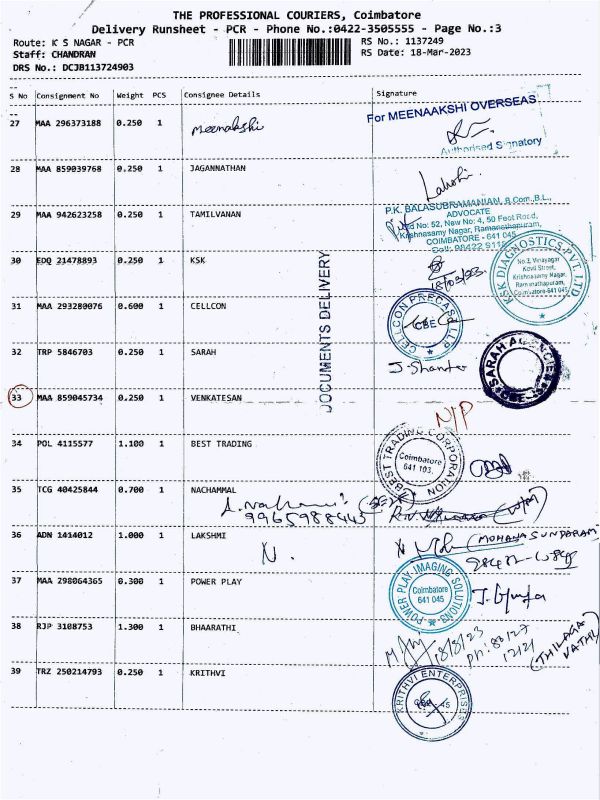 THE PROFESSIONAL COURIERS, Coimbatore
Delivery Runsheet - PCR - Phone No.:0422-3505555 - Page No.:3
Route: K S NAGAR - PCR
RS No.: 1137249
Staff: CHANDRAN
RS Date: 18-Mar-2023
DRS No.: DCJB113724903
S No Consignment No Weight PCS Consignee Details Signature
27 MAA 296373188 0.250 1 Meenakshi
For MEENAAKSHI OVERSEAS
Authorised Signatory
28 MAA 859039768 0.250 1 JAGANNATHAN
29 MAA 942623258 0.250 1 TAMILVANAN
P.K. BALASUBRAMANIAN, B.Com.,B.L.,
ADVOCATE
Old No: 52, New No: 4, 50 Feet Road,
Krishnasamy Nagar, Ramanathapuram,
COIMBATORE - 641 045
30 EDQ 21478893 0.250 1 KSK
18/03/23
KSK DIAGNOSTICS PVT. LTD
No.3, Vinayagar
Kovil Street,
Krishnasamy Nagar,
Ramnathapuram,
Coimbatore-641 045
DOCUMENTS DELIVERY
31 MAA 293280076 0.600 1 CELLCON
CELLCON PRECAST LLP
CBE
32 TRP 5846703 0.250 1 SARAH
J. Shanta
SARAH AGENCIES
33 MAA 859045734 0.250 1 VENKATESAN
N/P
34 POL 4115577 1.100 1 BEST TRADING
BEST TRADING CORPORATION
Coimbatore
641 103.
35 TCG 40425844 0.700 1 NACHAMMAL
9965988445
36 ADN 1414012 1.000 1 LAKSHMI
N.
(MOHANA SUNDARAM)
37 MAA 298064365 0.300 1 POWER PLAY
POWER PLAY IMAGING SOLUTIONS
Coimbatore
641 045
38 RJP 3108753 1.300 1 BHAARATHI
18/3/23
(THILAGA
VATHI)
39 TRZ 250214793 0.250 1 KRITHVI
KRITHVI ENTERPRISES